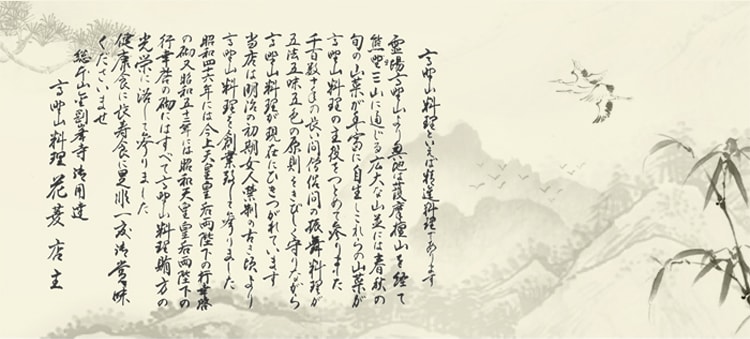 高野山料理といえば精進料理であります
霊場高野山より奥地は護摩壇山を経て
熊野三山に通じる広大な山並には春秋の
旬の山菜が豊富に自生しこれらの山菜が
高野山料理の主役をつとめて参りました
千百数十年の長い間僧侶間の振舞料理が
五法五味五色の原則をきびしく守りながら
高野山料理が現在にひきつがれています
当店は明治の初期女人禁制の古き頃より
高野山料理を創業致して参りました
昭和四十六年には今上天皇皇后両陛下の行幸啓
の砌又昭和五十二年には昭和天皇皇后両陛下の
行幸啓の砌にはすべて高野山料理賄方の
光栄に浴して参りました
健康食に長寿食に是非一度御賞味
くださいませ
総本山金剛峯寺御用達
高野山料理 花菱 店主